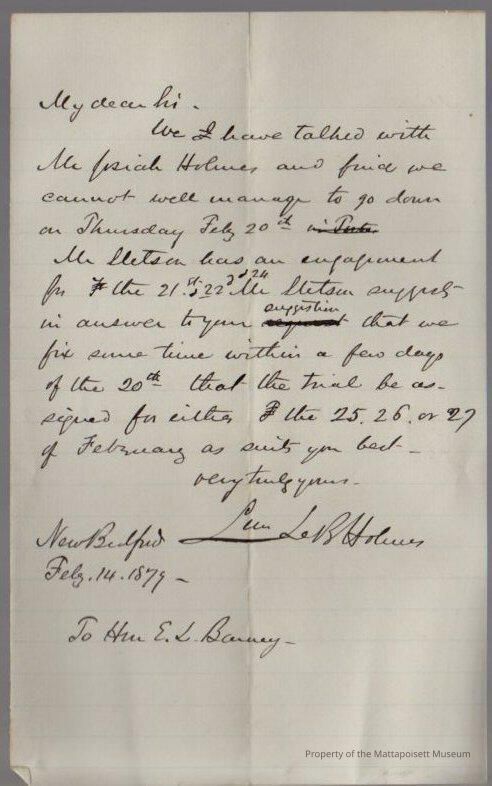 My dear Sir.
We I have talked with
Mr Josiah Holmes and find we
cannot well manage to go down
on Thursday Feby 20th in
Mr Stetson has an engagement
for the 21st, 22d, 24 Mr Stetson suggests
in answer to your request suggestion that we
fix some time within a few days
of the 20th that the trial be as-
signed for either the 25. 26. or 27
of February as suits you best -
very truly yours -
Lem LeB Holmes
New Bedford
Feby. 14. 1879 -
To Hon E. L. Barney -
Property of the Mattapoisett Museum